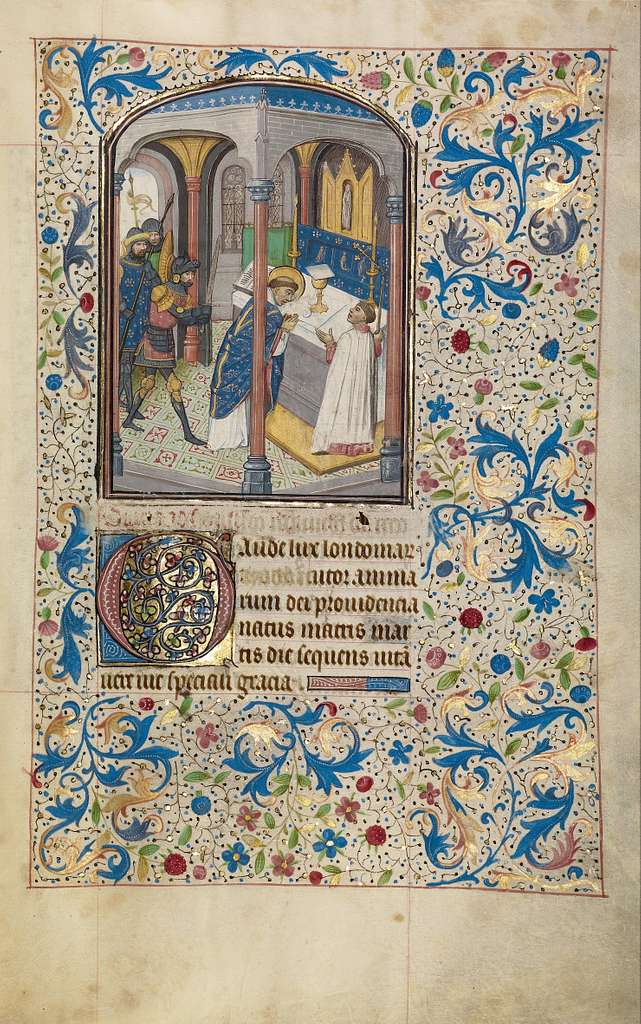 Gaude lux londoniar
tutor anima
rum dei prouidencia
natus martis mar
tis die sequens uitā
speciali gracia